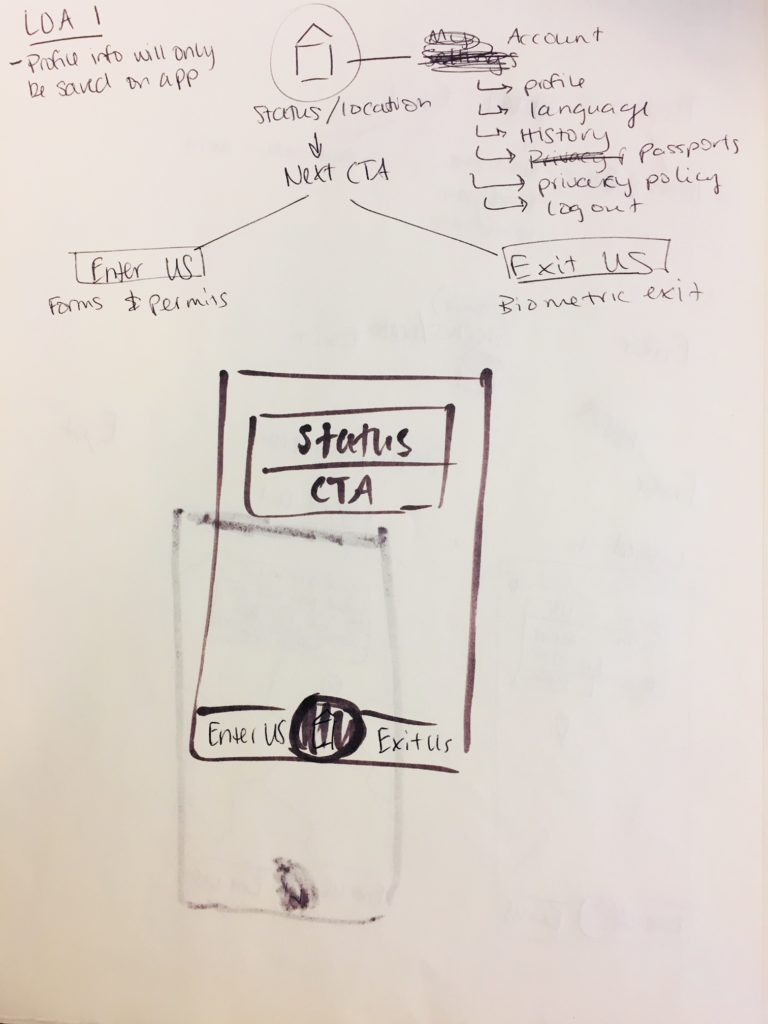 LOA 1
- Profile info will only
be saved on app
My Account
Settings
Status/location
profile
language
History
Privacy passports
privacy policy
log out
Next CTA
Enter US
Forms & permits
Exit US
Biometric exit
Status
CTA
Enter US
Exit US